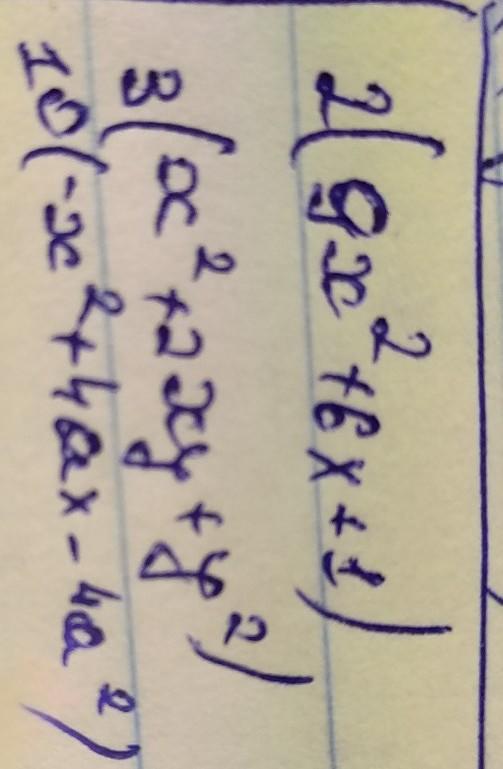 2(9x²+6x+1)
3(x²+2xy+y²)
10(-x²+4ax-4a²)